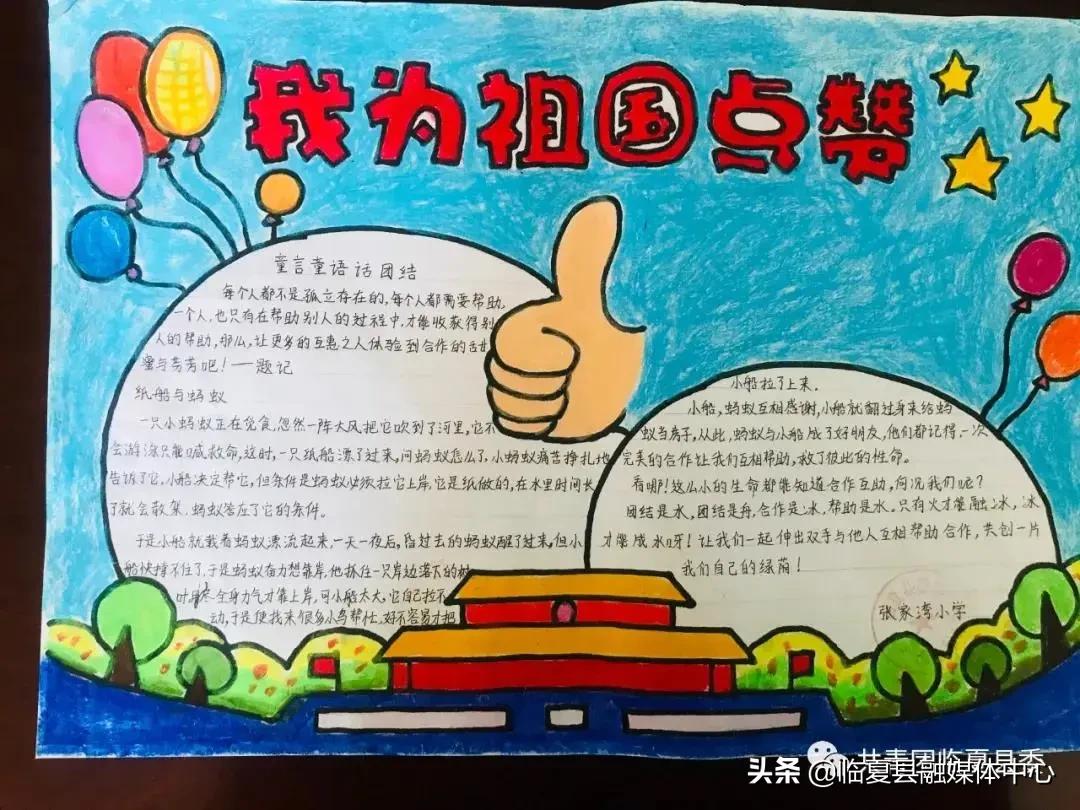 我为祖国点赞
童言童语话团结
每个人都不是孤立存在的,每个人都需要帮助,
一个人,也只有在帮助别人的过程中,才能收获得别
人的帮助,那么,让更多的互惠之人体验到合作的甜
蜜与芳芳吧!——题记
纸船与蚂蚁
一只小蚂蚁正在觅食,忽然一阵大风把它吹到了河里,它不
会游泳只能喊救命,这时,一只纸船漂了过来,问蚂蚁怎么了,小蚂蚁痛苦挣扎地
告诉了它,小船决定帮它,但条件是蚂蚁必须拉它上岸,它是纸做的,在水里时间长
了就会散架.蚂蚁答应了它的条件.
于是小船就载着蚂蚁漂流起来,一天一夜后,昏过去的蚂蚁醒了过来,但小
船快撑不住了,于是蚂蚁奋力想靠岸,他抓住一只岸边落下的树
叶用尽全身力气才靠上岸,可小船太大,它自己拉不
动,于是便找来很多小鸟帮忙,好不容易才把
小船拉了上来.
小船,蚂蚁互相感谢,小船就翻过身来给蚂
蚁当房子,从此,蚂蚁与小船成了好朋友,他们都记得,一次
完美的合作让我们互相帮助,救了彼此的性命。
看哪!这么小的生命都能知道合作互助,何况我们呢?
团结是水,团结是舟,合作是冰,帮助是水。只有火才能融冰,冰
才能成水呀!让我们一起伸出双手与他人互相帮助合作,共创一片
我们自己的绿荫!
张家湾小学
共青团临夏县委
头条 @临夏县融媒体中心